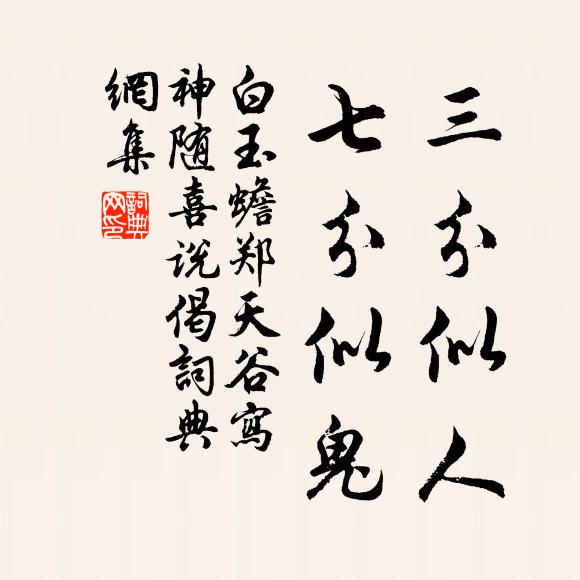 三分似人
七分似鬼
白玉蟾郑天谷寫
神随喜说偈詞典
網集
詞典網印